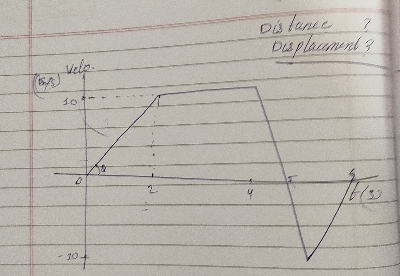 Distance ?
Displacement ?
Velo.
10
0
2
4
5
t(s)
-10